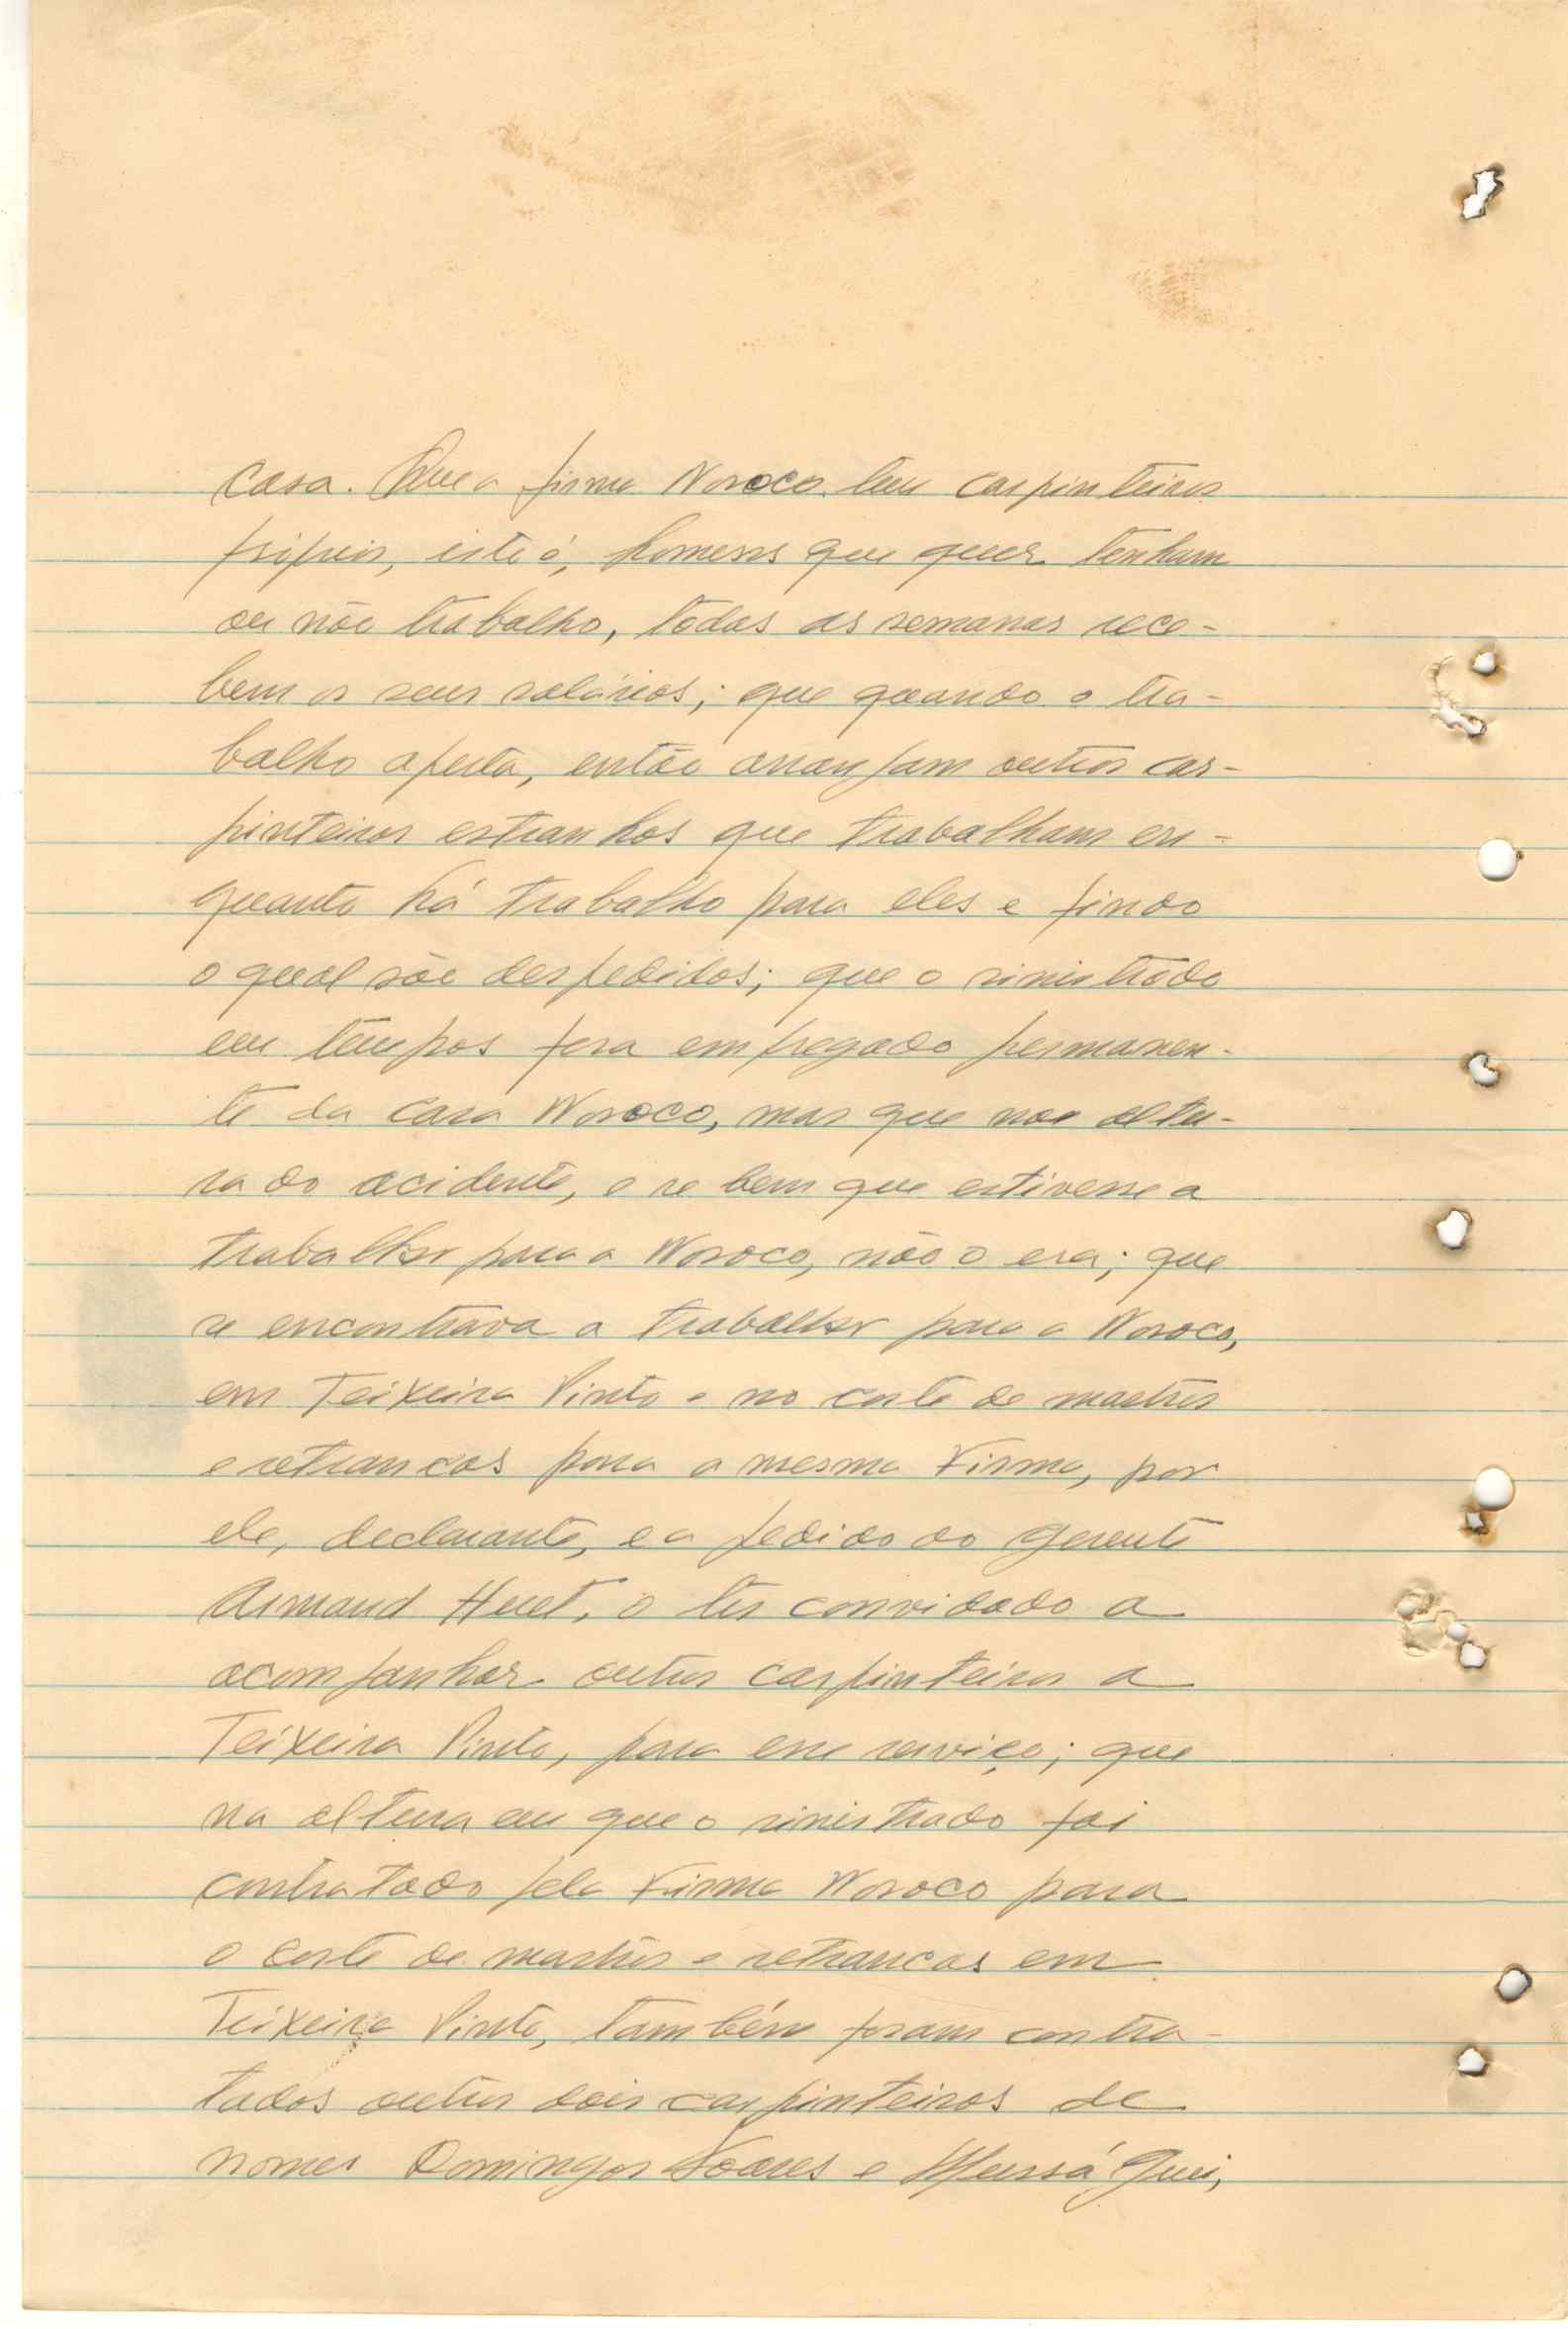 casa. Que a firma Nosoco tem carpinteiros
próprios, isto é, homens que quer tenham
ou não trabalho, todas as semanas rece-
bem os seus salários; que quando o tra-
balho aperta, então arranjam outros car-
pinteiros estranhos que trabalham en-
quanto há trabalho para eles e findo
o qual são despedidos; que o sinistrado
em tempos fora empregado permanen-
te da casa Nosoco, mas que na altu-
ra do acidente, e se bem que estivesse a
trabalhar para a Nosoco, não o era; que
se encontrava a trabalhar para a Nosoco,
em Teixeira Pinto e no corte de mastros
e retrancas para a mesma Firma, por
ele, declarante, e a pedido do gerente
Armand Huet, o ter convidado a
acompanhar outros carpinteiros a
Teixeira Pinto, para esse serviço; que
na altura em que o sinistrado foi
contratado pela Firma Nosoco para
o corte de mastros e retrancas em
Teixeira Pinto, também foram contra-
tados outros dois carpinteiros de
nomes Domingos Soares e Mussá Gui,